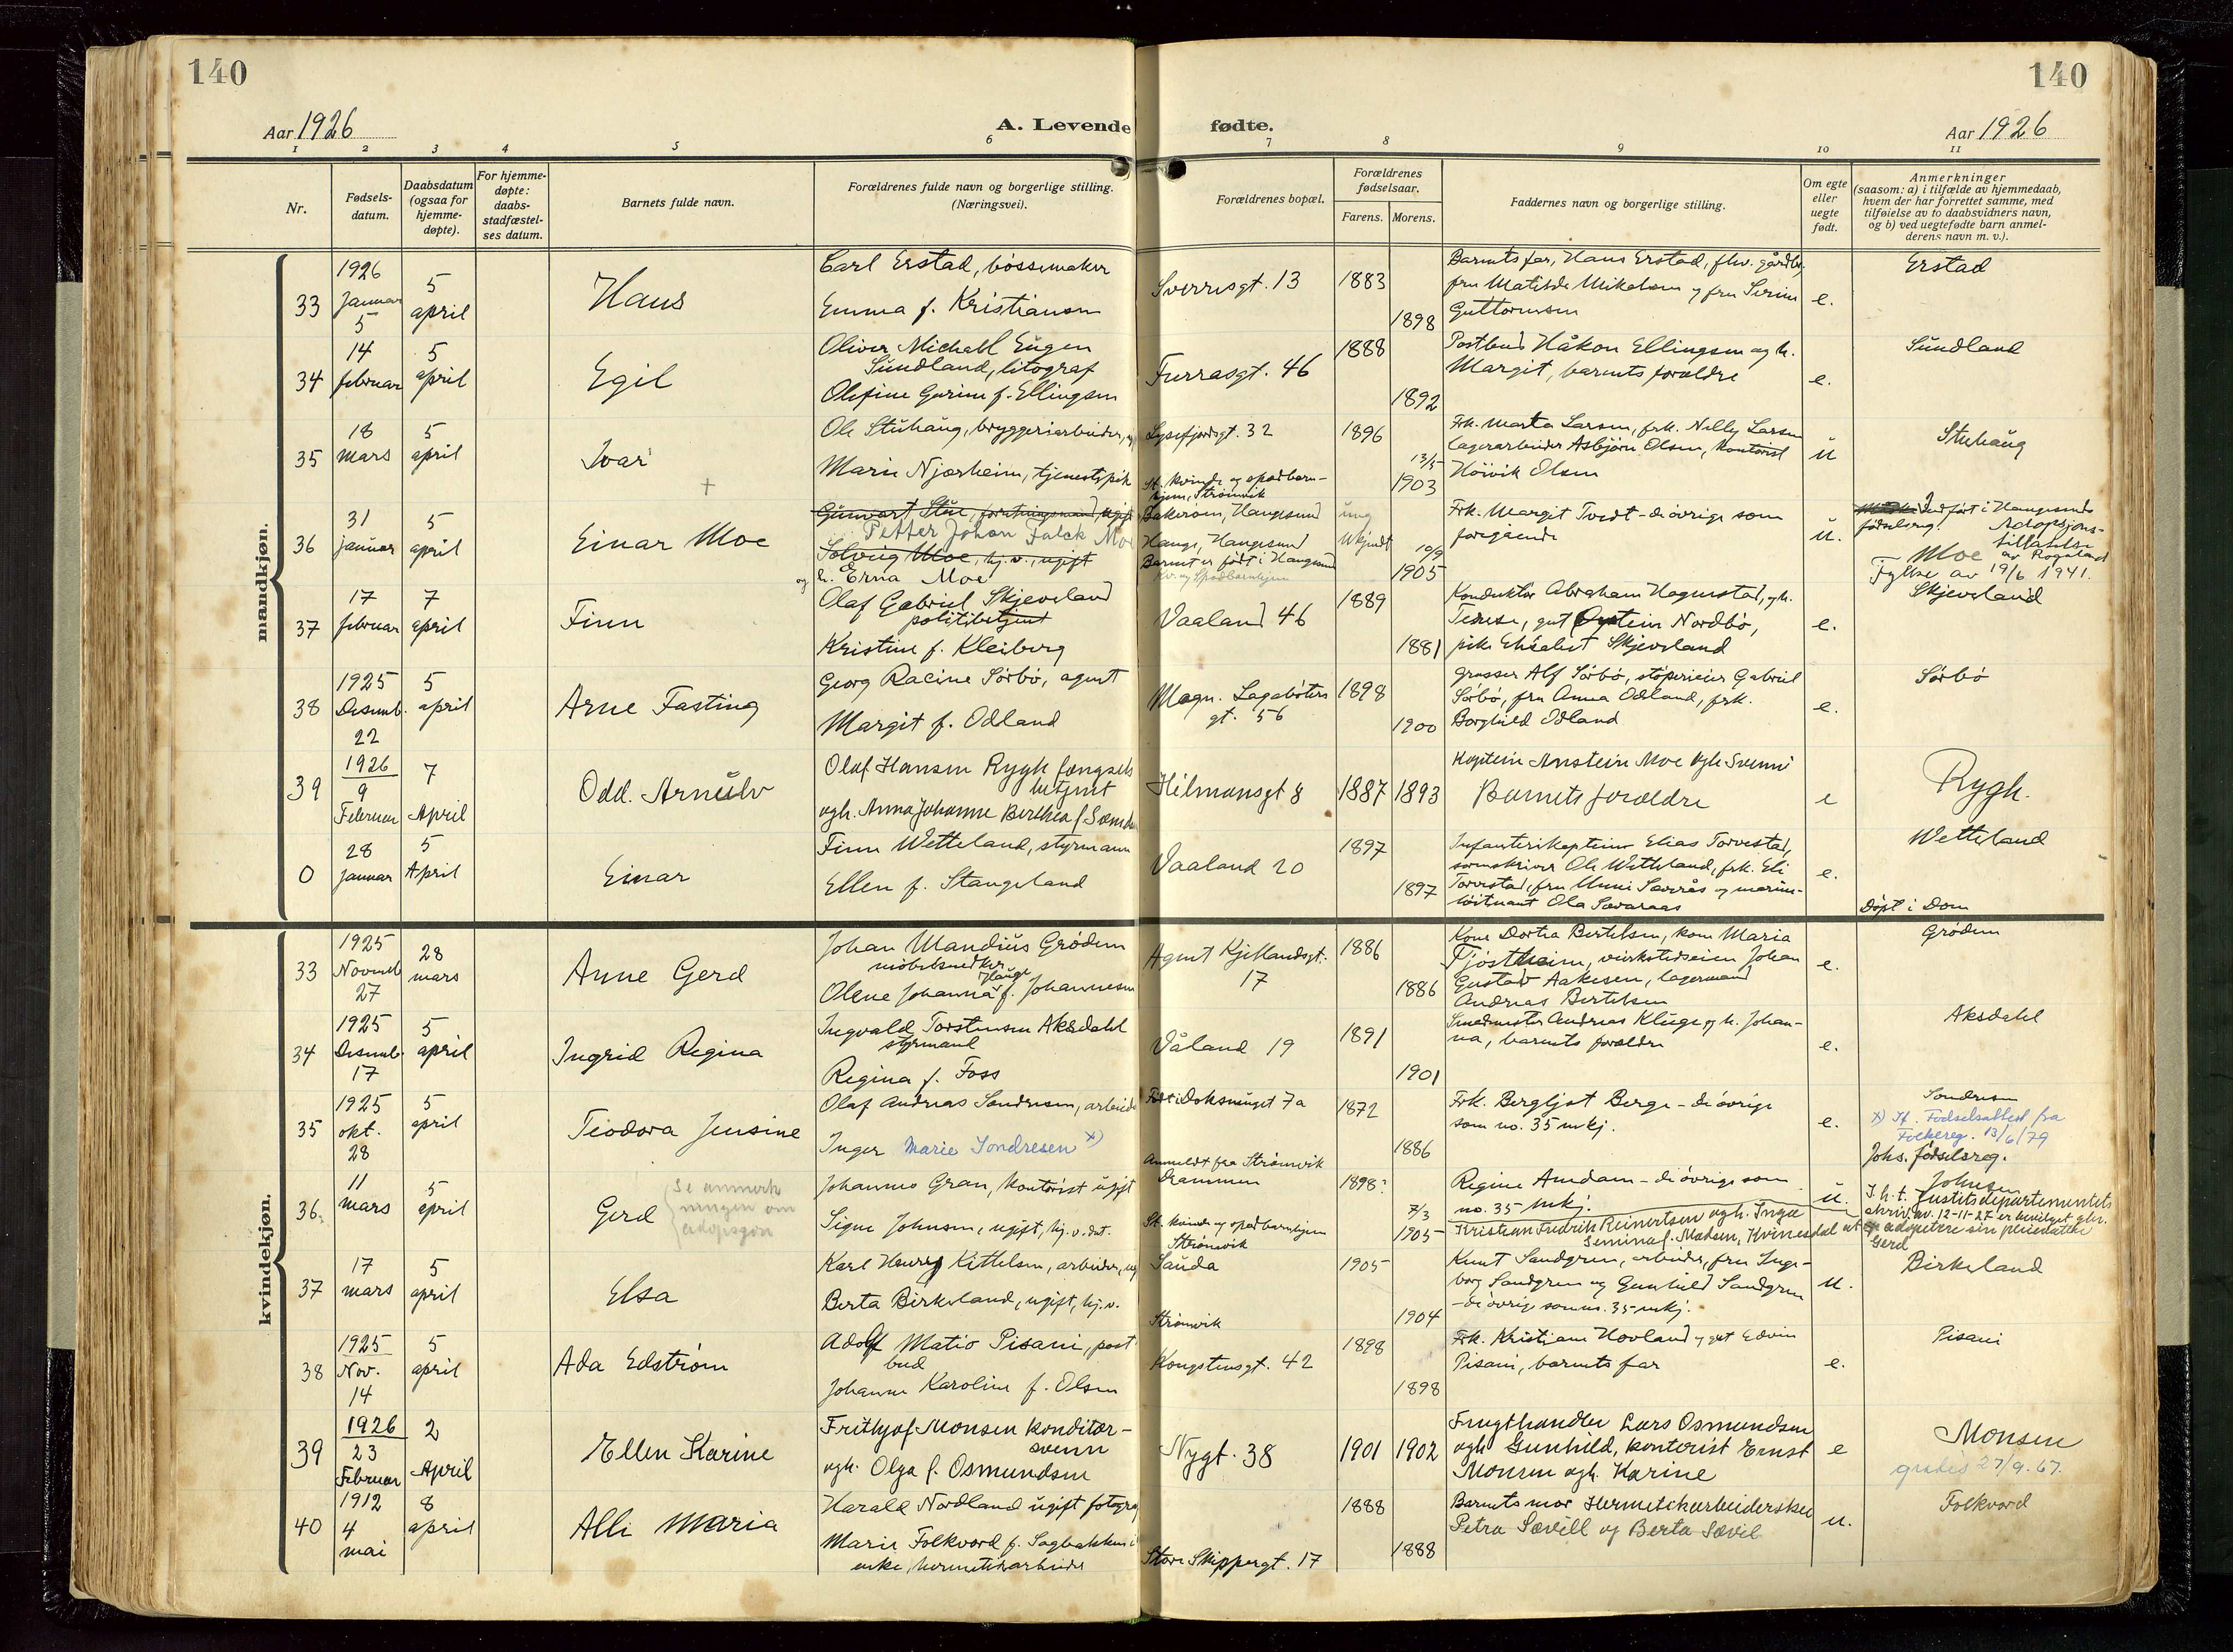 140
140
Aar 1926
A. Levende fødte.
Aar 1926
1 2 3 4 5 6 7 8 9 10 11
Nr.
Fødsels-
datum.
Daabsdatum
(ogsaa for
hjemme-
døpte).
For hjemme-
døpte:
daabs-
stadfæstel-
ses datum.
Barnets fulde navn.
Forældrenes fulde navn og borgerlige stilling.
(Næringsvei).
Forældrenes bopæl.
Forældrenes
fødselsaar.
Farens. Morens.
Faddernes navn og borgerlige stilling.
Om egte
eller
uegte
født.
Anmerkninger
(saasom: a) i tilfælde av hjemmedaab,
hvem der har forrettet samme, med
tilføielse av to daabsvidners navn,
og b) ved uegtefødte barn anmel-
derens navn m. v.).
mandkjøn.
33
1926
Januar
5
5
april
Hans
Carl Erstad, bøssemaker
Emma f. Kristiansen
Sverresgt. 13
1883
1898
Barnets far, Hans Erstad, fhv. gårdbr.
fru Matilde Mikalsen og fru Serine
Guttormsen
e.
Erstad
34
14
februar
5
april
Egil
Oliver Michael Eugen
Sundland, litograf
Olefine Gurine f. Ellingsen
Furrasgt. 46
1888
1892
Postbud Håkon Ellingsen og h.
Margit, barnets forældre
e.
Sundland
35
18
mars
5
april
Ivar
Ole Stuhaug, bryggeriarbeider,
Marie Njærheim, tjenestepike
Lysefjordsgt. 32
St. kvinde og spædbarn-
hjem, Strømvik
1896
13/5
1903
Frk. Marta Larsen, frk. Nelly Larsen
lagerarbeider Asbjørn Olsen, kontorist
Høivik Olsen
u
Stuhaug
36
31
januar
5
april
Einar Moe
Gunvart Stue, forretningsmand, ugift
Petter Johan Falck Moe
Solveig Moe, hj. v., ugift
og h. Erna Moe
Bakerøen, Haugesund
Hauge, Haugesund
Barnet er født i Haugesund
Kv. og Spedbarnhjem
ung
Ukjendt
10/9
1905
Frk. Margit Tvedt - de øvrige som
foregående
u.
Indført i Haugesunds
fødselsreg. Adopsjons-
tillatelse
Moe av Rogaland
Fylke av 19/6 1941.
37
17
februar
7
april
Finn
Olaf Gabriel Skjevsland
politibetjent
Kristine f. Kleiberg
Vaaland 46
1889
1881
Konduktør Abraham Hægrestad, og h.
Terese, gut Øystein Nordbø,
pike Elisabet Skjevsland
e.
Skjevsland
38
1925
Desemb.
22
5
april
Arne Fasting
Georg Racine Sørbø, agent
Margit f. Odland
Magn. Lagabøters
gt. 56
1898
1900
grosser Alf Sørbø, støperieier Gabriel
Sørbø, fru Anna Odland, frk.
Borghild Odland
e.
Sørbø
39
1926
9
Februar
7
April
Odd. Arnulv
Olaf Hansen Rygh fængsels
betjent
og h. Anna Johanne Berthea f
Hilmansgt 8
1887
1893
Kaptein Anstein Moe og h
Barnets forældre
e
Rygh.
0
28
Januar
5
April
Einar
Finn Wetteland, styrmann
Ellen f. Stangeland
Vaaland 20
1897
1897
Infanterikaptein Elias Torvestad,
sorenskriver Ole Wetteland, frk. Eli
Torvestad, fru Unni Sæverås og marine-
løitnant Ola Sævaraas
e.
Wetteland
Døpt i Dom
kvindekjøn.
33
1925
Novemb
27
28
mars
Anne Gerd
Johan Mandius Grødem
møbelsnedker
Hauge
Olene Johanna f. Johannesen
Agent Kjellandsgt.
17
1886
1886
Kone Dortia Bertelsen, kone Maria
Tjøstheim, verkstedseier Johan
Gustav Aakesen, lagermand
Andreas Bertelsen
e.
Grødem
34
1925
Desemb.
17
5
april
Ingrid Regina
Ingvald Torstensen Aksdahl
styrmand
Regina f. Foss
Våland 19
1891
1901
Smedmester Andreas Kluge og h. Johan-
na, barnets forældre
e.
Aksdahl
35
1925
okt.
28
5
april
Teodora Jensine
Olaf Andreas Sondresen, arbeider
Inger Marie Sondresen x)
Født i Doksmuget 7a
1872
1886
Frk. Bergljot Berge - de øvrige
som no. 35 mkj.
e.
Sondresen
x) If. Fødselsattest fra
Folkereg. 13/6/79
Johs. fødselsreg.
36.
11
mars
5
april
Gerd
Se anmerk
ningen om
adopsjon
Johannes Gran, kontorist ugift
Signe Johnsen, ugift, hj. v. dat.
Anmeldt fra Strømvik
Drammen
St. kvinde og spædbarnhjem
Strømvik
1898?
7/3
1905
Regine Amdam - de øvrige som
no. 35 mkj.
Kristian Fredrik Reinertsen og h. Inga
Semina f. Madsen, Kvinesdal at
u.
Johnsen
I. h. t. Justitsdepartementets
skriv. av. 12-11-27 er bevilget gbr.
adoptere sin pleiedatter
Gerd
37
17
mars
5
april
Elsa
Karl Henry Kittelsen, arbeider, ug
Berta Birkeland, ugift, hj. v.
Sauda
Strømvik
1905
1904
Knut Sandgren, arbeider, fru Inge-
borg Sandgren og Gunhild Sandgren
- de øvrige som no. 35 mkj.
u.
Birkeland
38
1925
Nov.
14
5
april
Ada Edstrøm
Adolf Matio Pisani, post
bud
Johanne Karoline f. Olsen
Kongstensgt. 42
1898
1898
Frk. Kristiane Hovland og gut Edvin
Pisani, barnets far
e.
Pisani
39
1926
23
Februar
2
April
Ellen Karine
Frithjof Monsen konditor-
svenn
og h. Olga f. Osmundsen
Nygt. 38
1901
1902
Frugthandler Lars Osmundsen
og h Gunhild, kontorist Ernst
Monsen og h. Karine
e
Monsen
gratis 27/9. 67.
40
1912
4
mai
8
april
Alli Maria
Harald Nordland ugift fotogra
Marie Folkvord f. Sagbakken
enke, hermetikarbeider
Store Skippergt. 17
1888
1888
Barnets mor Hermetikarbeiderske
Petra Sævill og Berta Sævil
u.
Folkvord